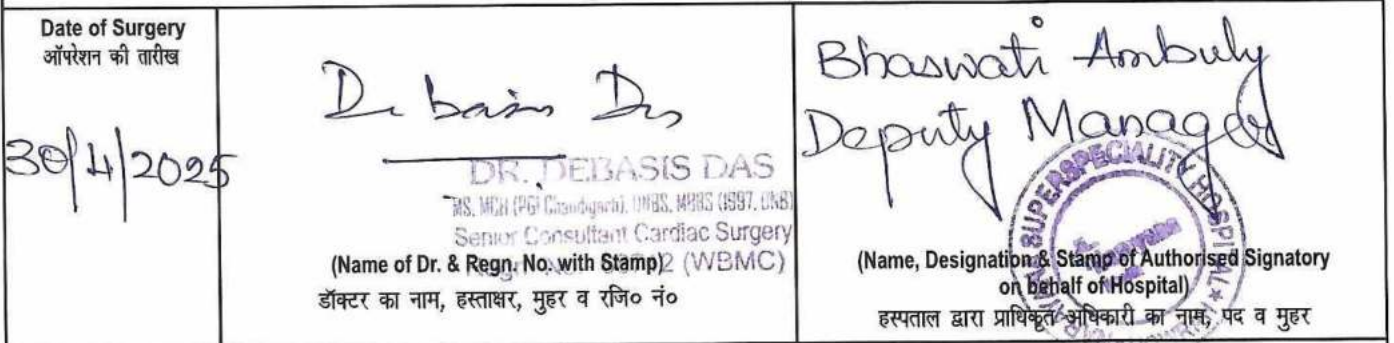 Date of Surgery
ऑपरेशन की तारीख
30/4/2025
Debasis Das
DR. DEBASIS DAS
MS, MCH (PGI Chandigarh), DNBS, MBBS (1997,
Senior Consultant Cardiac Surgery
(WBMC)
(Name of Dr. & Regn. No. with Stamp)
डॉक्टर का नाम, हस्ताक्षर, मुहर व रजि० नं०
Bhaswati Ambuly
Deputy Manager
SUPERSPECIALITY HOSPITAL
(Name, Designation & Stamp of Authorised Signatory
on behalf of Hospital)
हस्पताल द्वारा प्राधिकृत अधिकारी का नाम, पद व मुहर